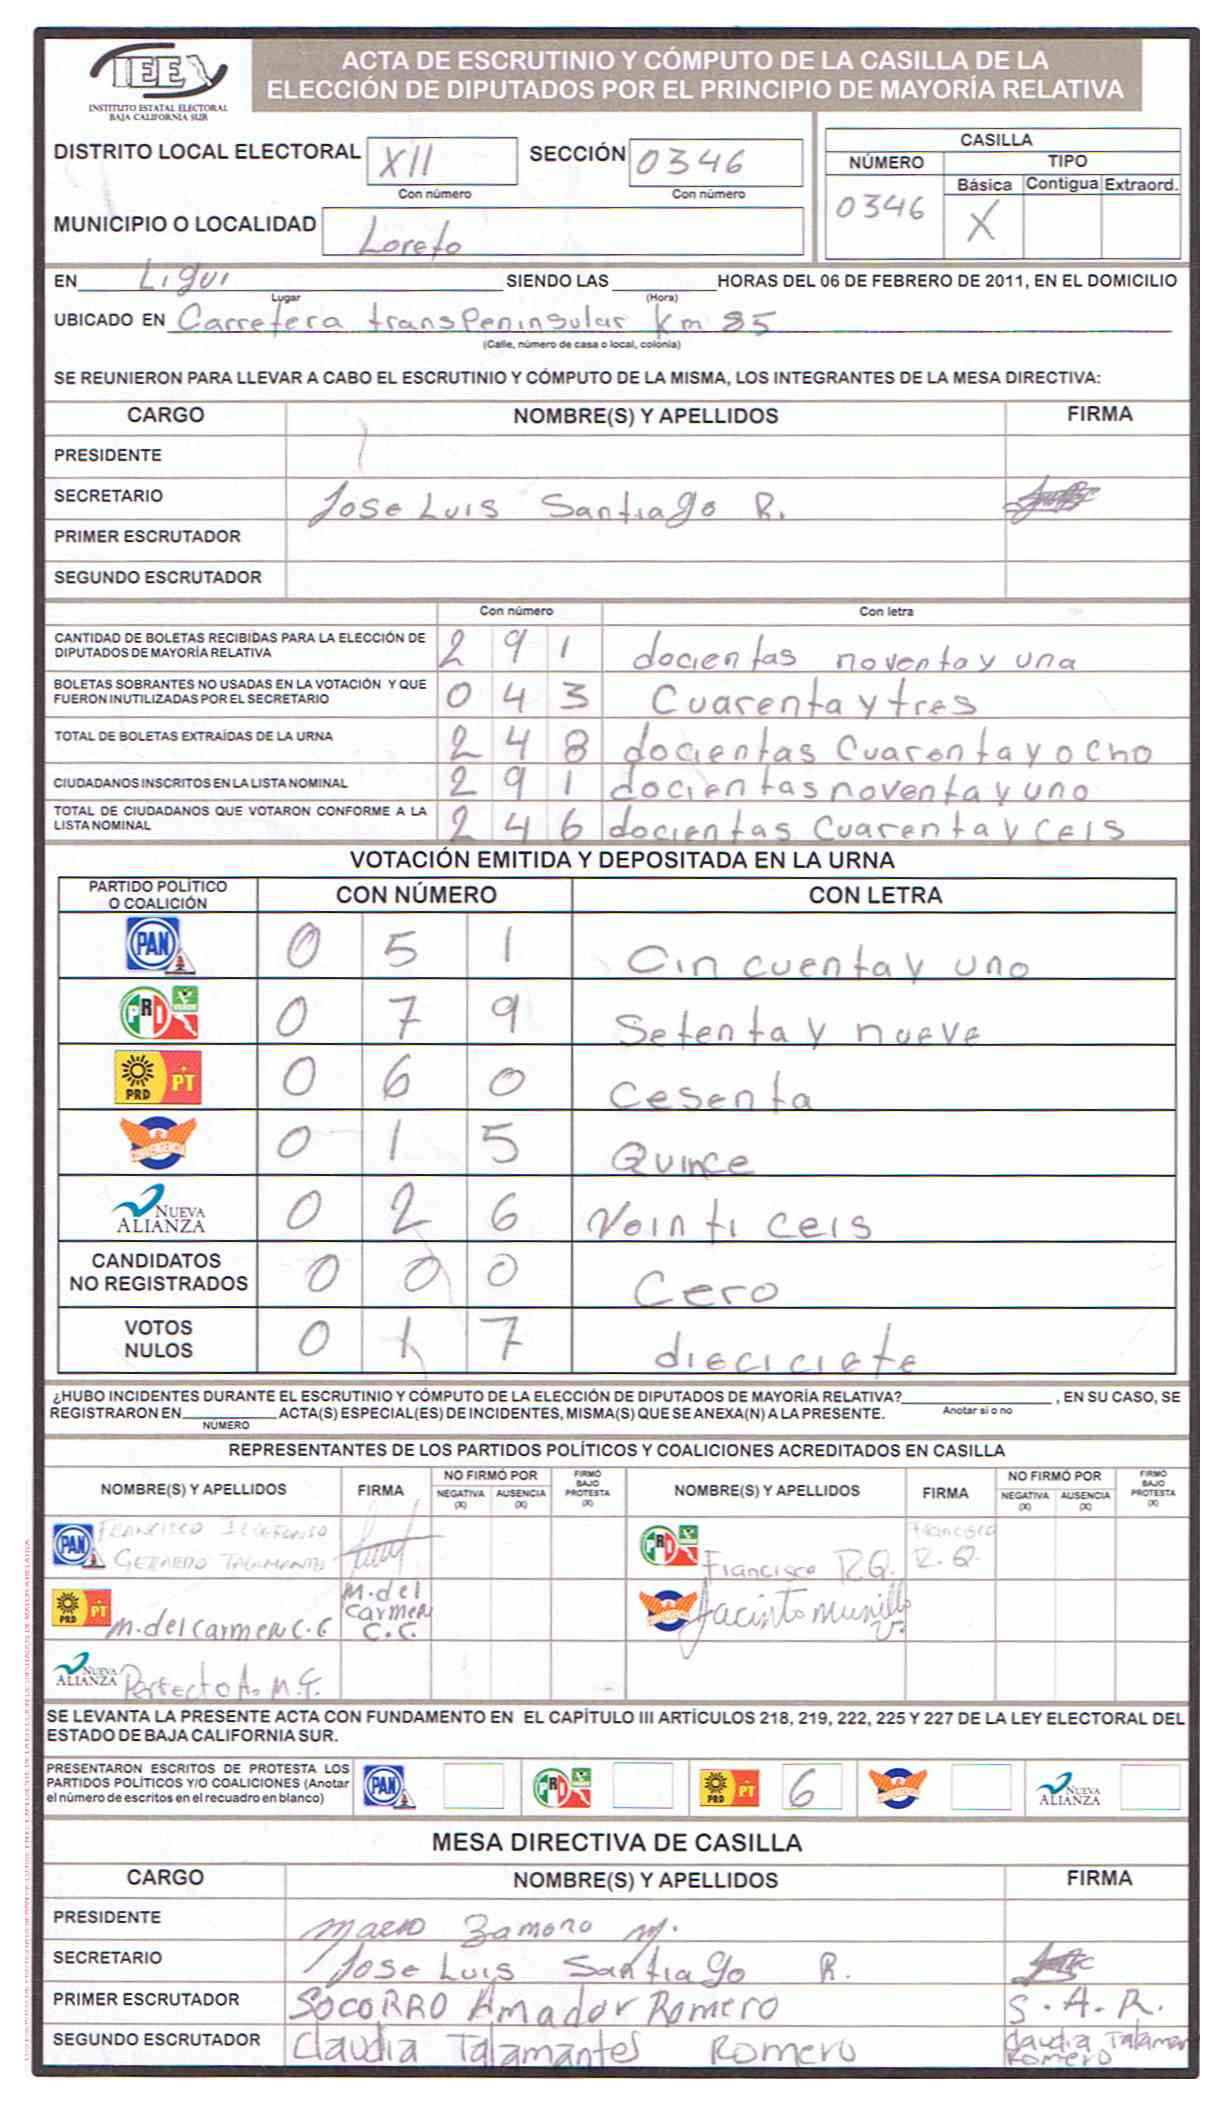 IEE
INSTITUTO ESTATAL ELECTORAL
BAJA CALIFORNIA SUR
ACTA DE ESCRUTINIO Y CÓMPUTO DE LA CASILLA DE LA
ELECCIÓN DE DIPUTADOS POR EL PRINCIPIO DE MAYORÍA RELATIVA
DISTRITO LOCAL ELECTORAL XII SECCIÓN 0346
Con número Con número
MUNICIPIO O LOCALIDAD Loreto
CASILLA
NÚMERO TIPO
Básica Contigua Extraord.
0346 X
EN Ligui SIENDO LAS HORAS DEL 06 DE FEBRERO DE 2011, EN EL DOMICILIO
Lugar (Hora)
UBICADO EN Carretera transPeninsular Km 85
(Calle, número de casa o local, colonia)
SE REUNIERON PARA LLEVAR A CABO EL ESCRUTINIO Y CÓMPUTO DE LA MISMA, LOS INTEGRANTES DE LA MESA DIRECTIVA:
CARGO NOMBRE(S) Y APELLIDOS FIRMA
PRESIDENTE
SECRETARIO Jose Luis Santiago R.
PRIMER ESCRUTADOR
SEGUNDO ESCRUTADOR
Con número Con letra
CANTIDAD DE BOLETAS RECIBIDAS PARA LA ELECCIÓN DE
DIPUTADOS DE MAYORÍA RELATIVA 2 9 1 docientas noventa y una
BOLETAS SOBRANTES NO USADAS EN LA VOTACIÓN Y QUE
FUERON INUTILIZADAS POR EL SECRETARIO 0 4 3 Cuarenta y tres
TOTAL DE BOLETAS EXTRAÍDAS DE LA URNA 2 4 8 docientas Cuarenta y ocho
CIUDADANOS INSCRITOS EN LA LISTA NOMINAL 2 9 1 docientas noventa y uno
TOTAL DE CIUDADANOS QUE VOTARON CONFORME A LA
LISTA NOMINAL 2 4 6 docientas Cuarenta y ceis
VOTACIÓN EMITIDA Y DEPOSITADA EN LA URNA
PARTIDO POLÍTICO
O COALICIÓN CON NÚMERO CON LETRA
PAN 0 5 1 Cincuenta y uno
PRI VERDE 0 7 9 Setenta y nueve
PRD PT 0 6 0 Cesenta
CONVERGENCIA 0 1 5 Quince
NUEVA ALIANZA 0 2 6 Veinti ceis
CANDIDATOS
NO REGISTRADOS 0 0 0 Cero
VOTOS
NULOS 0 1 7 dieciciete
¿HUBO INCIDENTES DURANTE EL ESCRUTINIO Y CÓMPUTO DE LA ELECCIÓN DE DIPUTADOS DE MAYORÍA RELATIVA? , EN SU CASO, SE
Anotar si o no
REGISTRARON EN ACTA(S) ESPECIAL(ES) DE INCIDENTES, MISMA(S) QUE SE ANEXA(N) A LA PRESENTE.
NÚMERO
REPRESENTANTES DE LOS PARTIDOS POLÍTICOS Y COALICIONES ACREDITADOS EN CASILLA
NOMBRE(S) Y APELLIDOS FIRMA NO FIRMÓ POR NEGATIVA (X) AUSENCIA (X) FIRMÓ BAJO PROTESTA (X) NOMBRE(S) Y APELLIDOS FIRMA NO FIRMÓ POR NEGATIVA (X) AUSENCIA (X) FIRMÓ BAJO PROTESTA (X)
PAN FRANCISCO ILDEFONSO
GERARDO TALAMANTES
PRI Francisco R.Q. Francisco R.Q.
PRD PT M. del Carmen C.C M. del Carmen C.C.
Jacinto Murillo V.
NUEVA ALIANZA Perfecto A. M. F.
SE LEVANTA LA PRESENTE ACTA CON FUNDAMENTO EN EL CAPÍTULO III ARTÍCULOS 218, 219, 222, 225 Y 227 DE LA LEY ELECTORAL DEL
ESTADO DE BAJA CALIFORNIA SUR.
PRESENTARON ESCRITOS DE PROTESTA LOS
PARTIDOS POLÍTICOS Y/O COALICIONES (Anotar
el número de escritos en el recuadro en blanco)
PAN PRI PRD PT 6 NUEVA ALIANZA
MESA DIRECTIVA DE CASILLA
CARGO NOMBRE(S) Y APELLIDOS FIRMA
PRESIDENTE Mario Zamora M.
SECRETARIO Jose Luis Santiago R.
PRIMER ESCRUTADOR SOCORRO Amador Romero S.A.R.
SEGUNDO ESCRUTADOR Claudia Talamantes Romero Claudia Talaman Romero